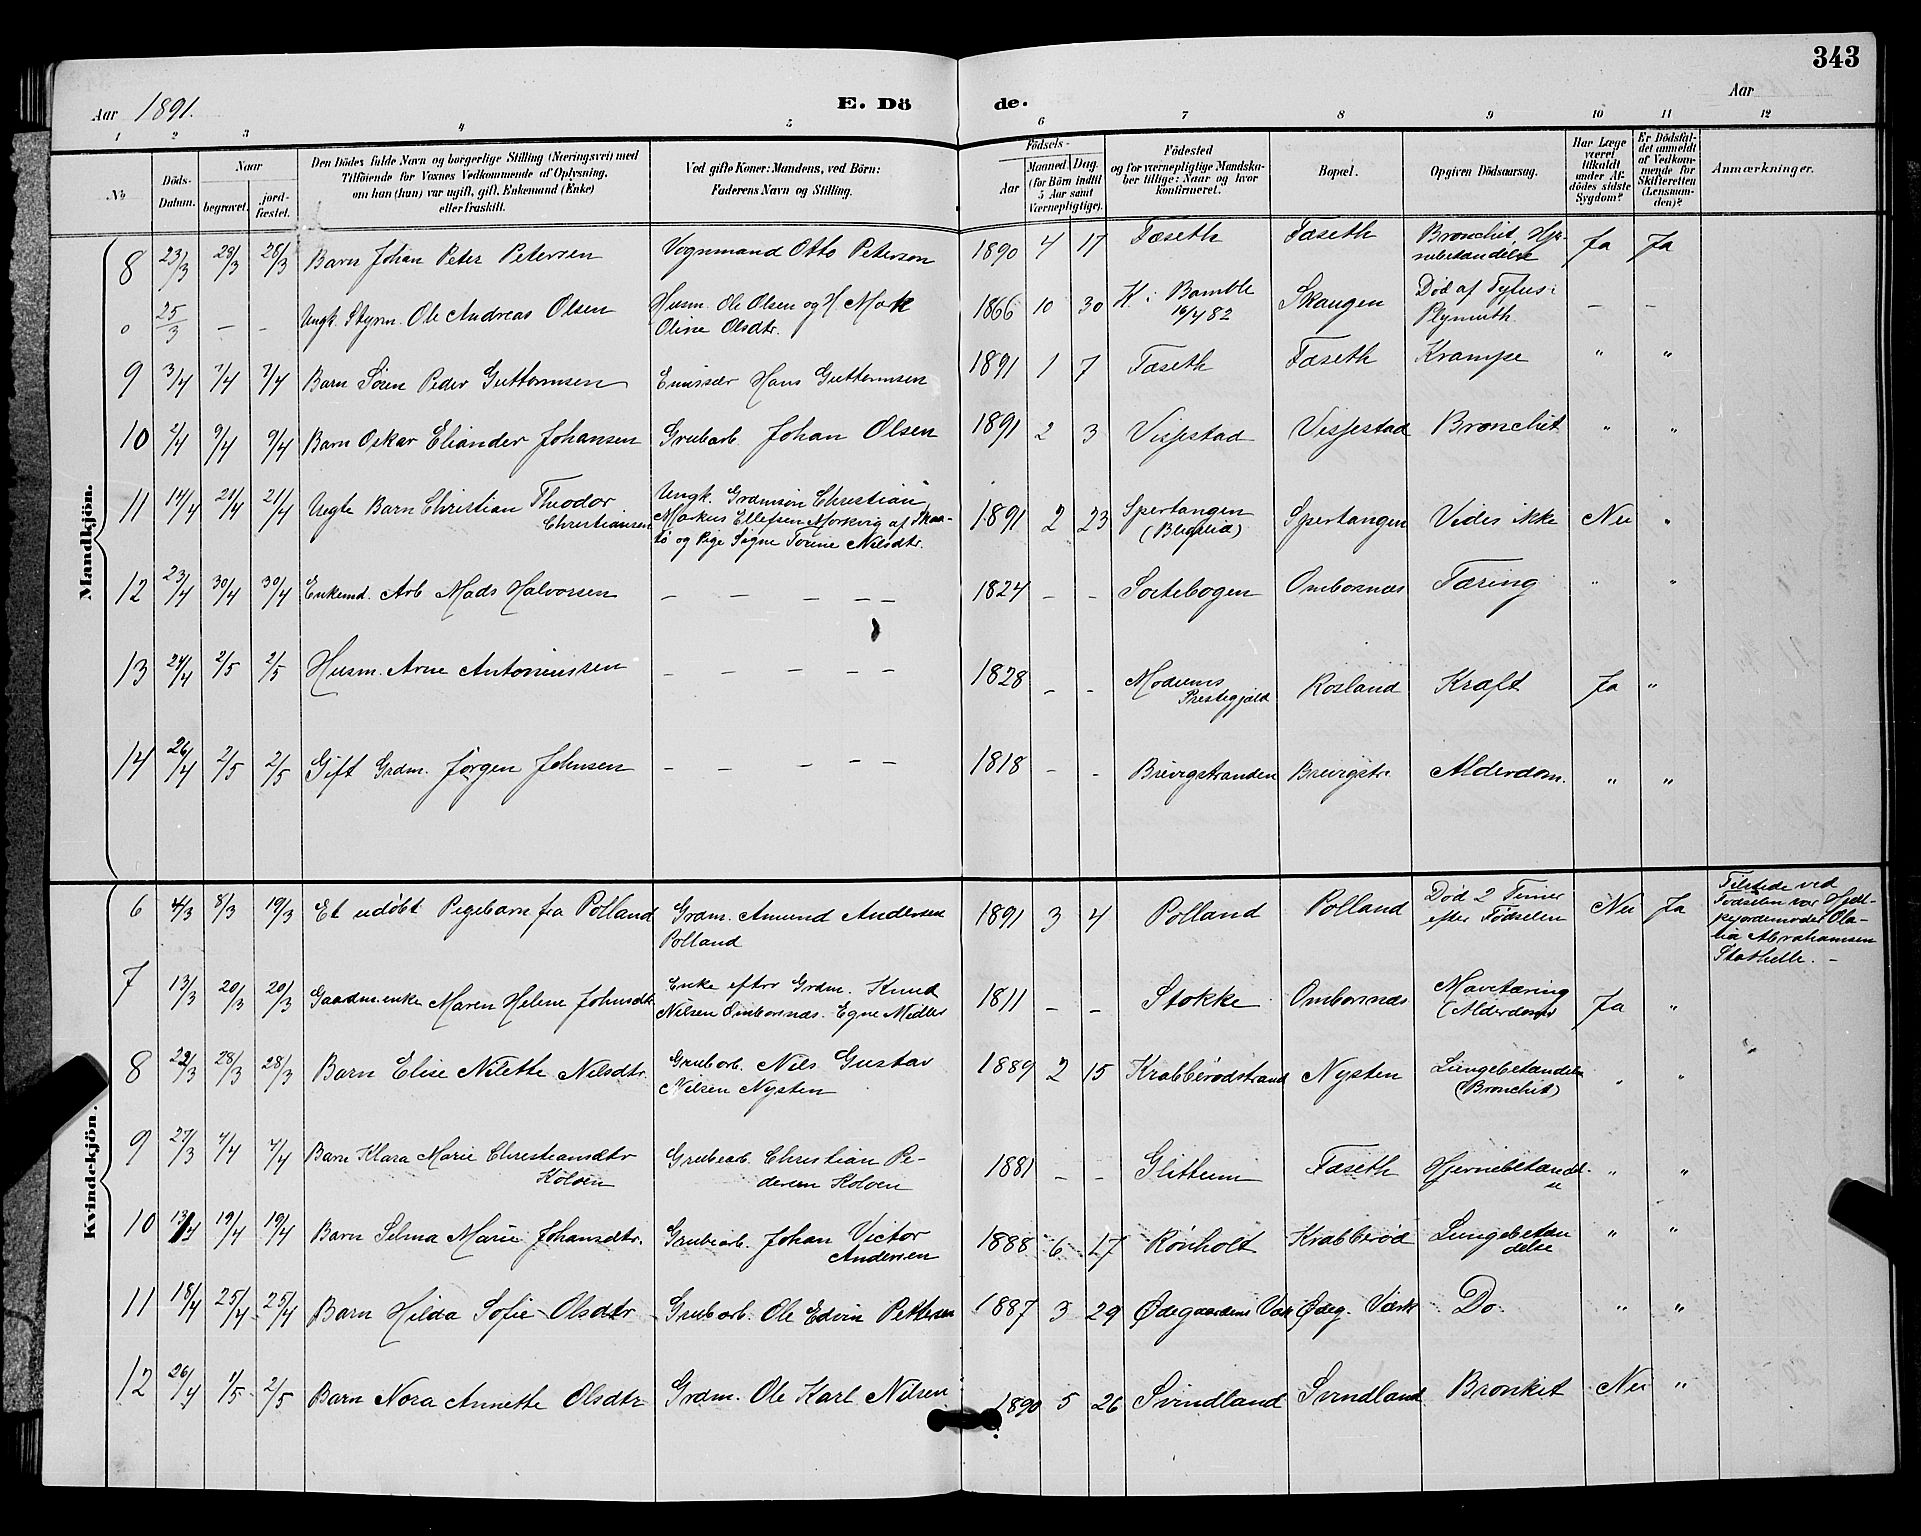 343
Aar 1891. E. Dö de. Aar
1 2 3 4 5 6 7 8 9 10 11 12
No
Döds-Datum.
Naar
begravet. jordfæstet.
Den Dödes fulde Navn og borgerlige Stilling (Næringsvei) med
Tilföiende for Voxnes Vedkommende af Oplysning,
om han (hun) var ugift, gift, Enkemand (Enke)
eller fraskilt.
Ved gifte Koner: Mandens, ved Börn:
Faderens Navn og Stilling.
Födsels-
Aar Maaned Dag.
(for Börn indtil
5 Aar samt
Værnepligtige).
Födested
og for værnepligtige Mandska-
ber tillige: Naar og hvor
konfirmeret.
Bopæl.
Opgiven Dödsaarsag.
Har Læge
været
tilkaldt
under Af-
dödes sidste
Sygdom?
Er Dödsfal-
det anmeldt
af Vedkom-
mende for
Skifteretten
(Lensman-
den)?
Anmærkninger.
Mandkjön.
8 23/3 28/3 28/3 Barn Johan Peter Petersen Vognmand Otto Peterson 1890 4 17 Fæseth Fæseth Bronchit, Hjer-
nebetændelse Ja Ja
o 25/3 — — Ungk. Styrm. Ole Andreas Olsen Husm. Ole Olsen og H Mok
Oline Olsdtr. 1866 10 30 K. i Bamble
16/4 82 Skaugen Död af Tyfus i
Plymuth. — —
9 3/4 7/4 7/4 Barn Sören Peder Guttormsen Emissær Hans Guttormsen 1891 1 7 Fæseth Fæseth Krampe " "
10 2/4 9/4 9/4 Barn Oskar Eliander Johansen Grubarb. Johan Olsen 1891 2 3 Visjestad Visjestad Bronchit " "
11 14/4 21/4 21/4 Uegte Barn Christian Theodor
Christiansen Ungk. Grdmsön Christian
Markus Ellefsen Morkvig af Skaa-
tö og Pige Signe Torine Nilsdtr. 1891 2 23 Spertangen Spertangen Vides ikke Nei "
12 23/4 30/4 30/4 Enkemd. Arb Mads Halvorsen — — — — — 1824 — — Sortebogen Ombornæs Tæring " "
13 24/4 2/5 2/5 Husm. Arne Antoniussen — — — — — 1828 — — Modums
Prestegjeld Rosland Kræft Ja "
14 26/4 2/5 2/5 Gift Grdm. Jörgen Johnsen — — — — — 1818 — — Brevigstranden Brevigstr. Alderdom. " "
Kvindekjön.
6 4/3 8/3 19/3 Et udöbt Pigebarn fra Polland Grdm. Amund Andersen
Polland 1891 3 4 Polland Polland Död 2 Timer
efter Födselen Nei Ja Tilstede ved
Födselen var Hjæl-
pejordemoder Ola-
lia Abrahamsen
Stathelle. —
7 13/3 20/3 20/3 Gaardm.enke Maren Helene Johnsdtr. Enke efter Grdm. Knud
Nilsen Ombornæs. Egne Midler 1811 — — Stokke Ombornæs Mavetæring
(Alderdom) Ja "
8 22/3 28/3 28/3 Barn Elise Nilette Nilsdtr. Grubarb. Nils Gustav
Nilsen Nysten 1889 2 15 Krabberödstrand Nysten Lungebetændelse
(Bronchit) " "
9 27/3 4/4 4/4 Barn Klara Marie Christiansdtr
Kolven Grubearb. Christian Pe-
dersen Kolven 1881 — — Glitteim Fæseth Hjernebetændel- " "
10 13/4 19/4 19/4 Barn Selma Marie Johansdtr. Grubearb. Johan Victor
Andersen 1888 6 17 Rönholt Krabberöd Lungebetæn
delse " "
11 18/4 25/4 25/4 Barn Hilda Sofie Olsdtr Grubarb. Ole Edvin Pettersen 1887 3 29 Ødegaardens Værk Ødeg. Værk Do. " "
12 26/4 1/5 2/5 Barn Nora Annette Olsdtr Grdm. Ole Karl Nilsen 1890 5 26 Svindland Svindland Bronkit Nei "